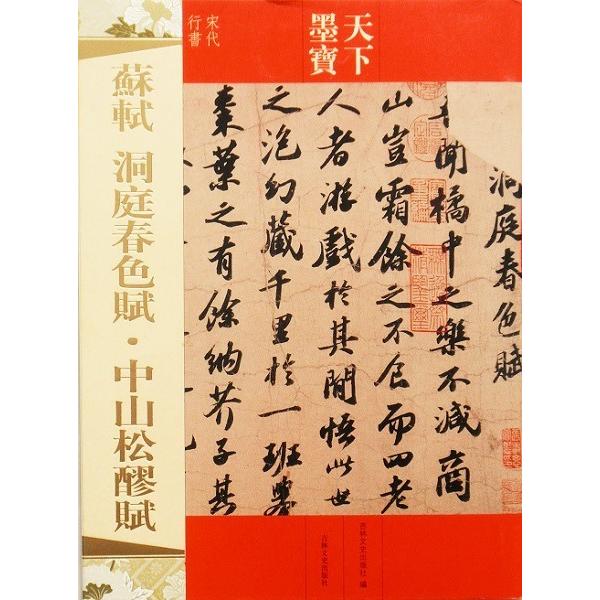 天下
墨寶
宋代
行書
蘇軾 洞庭春色賦・中山松醪賦
洞庭春色賦
聞橘中之樂不減商
山豈霜餘之不食而四老
人者游戲於其間悟此世
之泡幻藏千里於一班舉
棗葉之有餘納芥子其
吉林文史出版社 編
吉林文史出版社